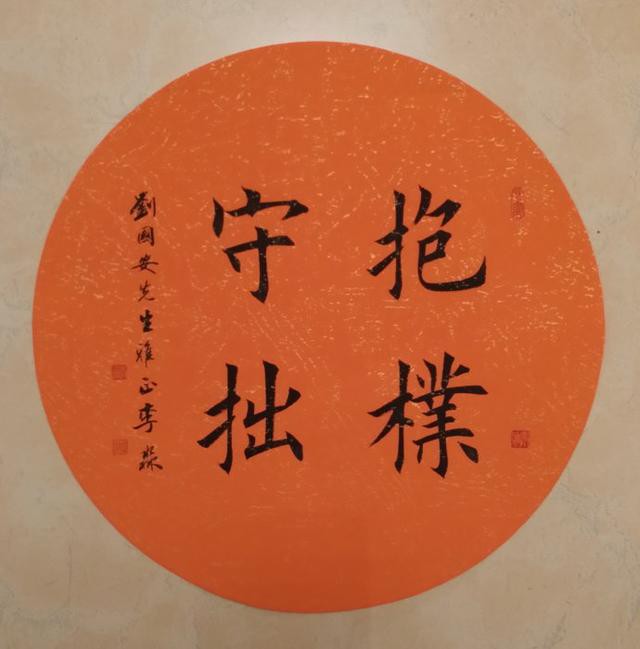 抱樸
守拙
劉國安先生雅正李淼